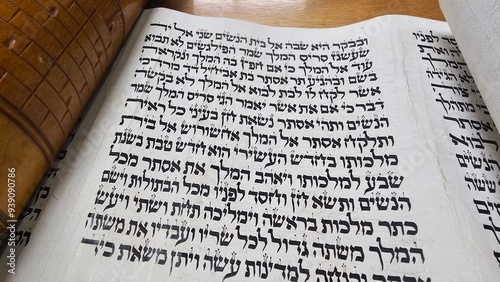 ובבקר היא שבה אל בית הנשים שני אל יד
שעשגז סריס המלך שמר הפילגשים לא תבוא
עוד אל המלך כי אם חפץ בה המלך ונקראה
בשם ובהגיע תר אסתר בת אביחיל דד מרדכי
אשר לקח לו לבת לבוא אל המלך לא בקשה
דבר כי אם את אשר יאמר הגי סריס המלך שמר
הנשים ותהי אסתר נשאת חן בעיני כל ראיה
ותלקח אסתר אל המלך אחשורוש אל בית
מלכותו בחדש העשירי הוא חדש טבת בשנת
שבע למלכותו ויאהב המלך את אסתר מכל
הנשים ותשא חן וחסד לפניו מכל הבתולות וישם
כתר מלכות בראשה וימליכה תחת ושתי ויעש
המלך משתה גדול לכל שריו ועבדיו את משתה
אסתר והנחה למדינות עשה ויתן משאת כיד
Adobe Stock | #939090786